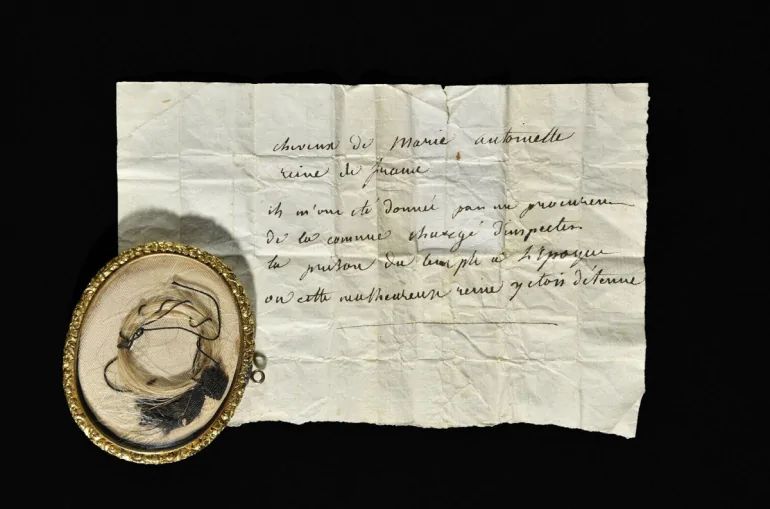 cheveux de Marie antoinette
reine de france
ils m'ont été donné par un procureur
de la commune chargé d'inspecter
la prison du temple a L'Epoque
ou cette malheureuse reine y etois détenue